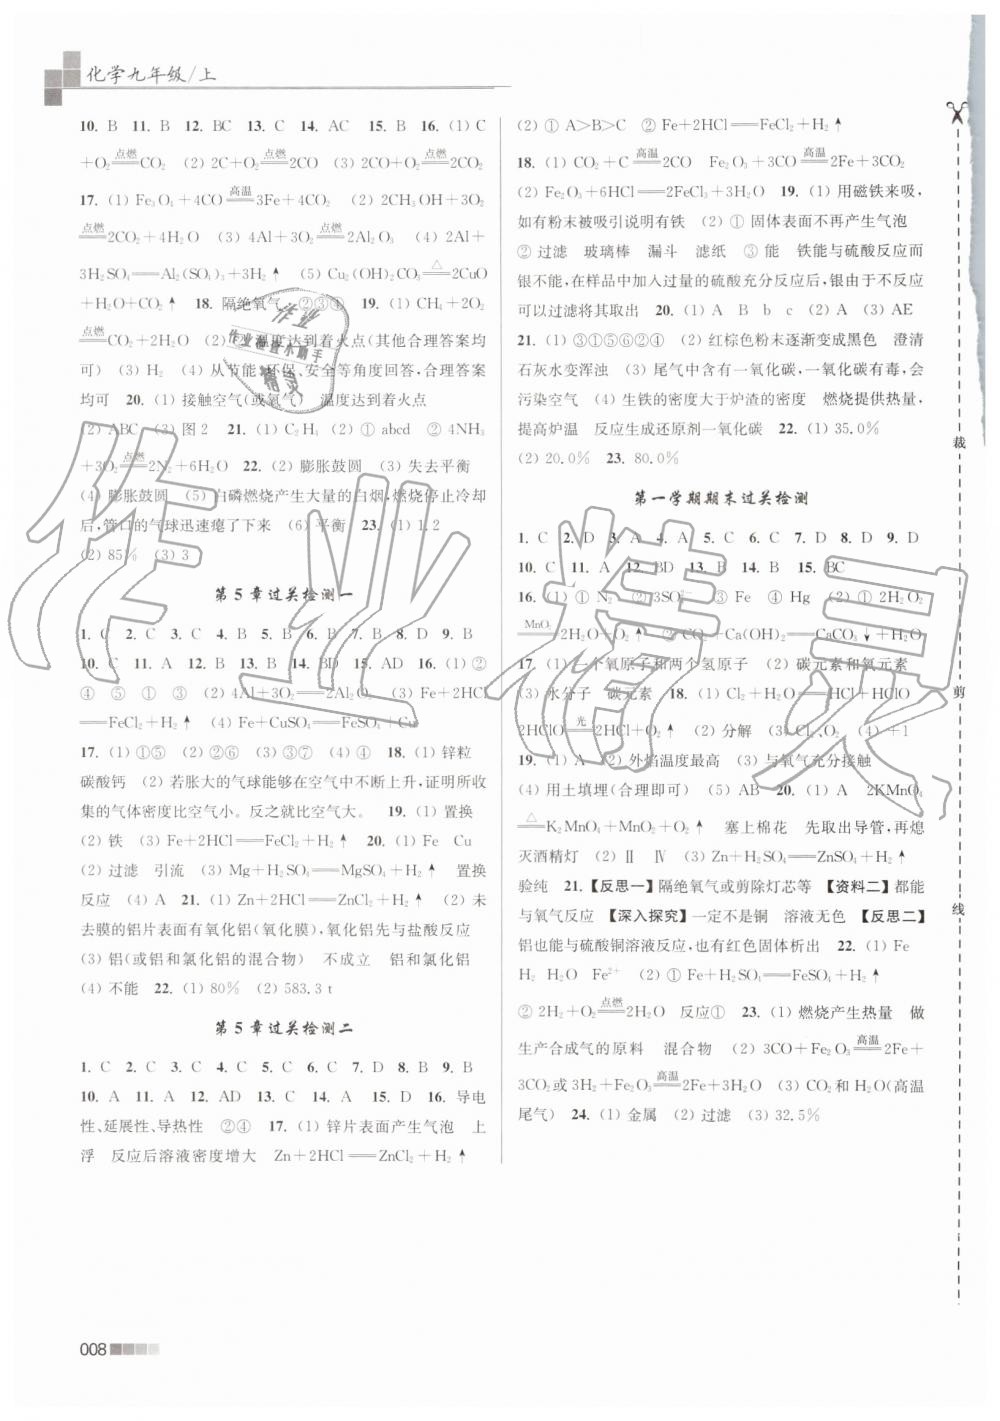 化学九年级/上
10. B 11. B 12. BC 13. C 14. AC 15. B 16. (1) C
+O₂ 点燃══ CO₂ (2) 2C+O₂ 点燃══ 2CO (3) 2CO+O₂ 点燃══ 2CO₂
17. (1) Fe₃O₄+4CO 高温══ 3Fe+4CO₂ (2) 2CH₃OH+3O₂
点燃══ 2CO₂+4H₂O (3) 4Al+3O₂ 点燃══ 2Al₂O₃ (4) 2Al+
3H₂SO₄══Al₂(SO₄)₃+3H₂↑ (5) Cu₂(OH)₂CO₃ △══ 2CuO
+H₂O+CO₂↑ 18. 隔绝氧气 ②③④ 19. (1) CH₄+2O₂
点燃══ CO₂+2H₂O (2) 温度达到着火点(其他合理答案均
可) (3) H₂ (4) 从节能、环保、安全等角度回答,合理答案
均可 20. (1) 接触空气(或氧气) 温度达到着火点
(2) ABC (3) 图2 21. (1) C₂H₄ (2) ① abcd ② 4NH₃
+3O₂ 点燃══ 2N₂+6H₂O 22. (2) 膨胀鼓圆 (3) 失去平衡
(4) 膨胀鼓圆 (5) 白磷燃烧产生大量的白烟,燃烧停止冷却
后,管口的气球迅速瘪了下来 (6) 平衡 23. (1) 1.2
(2) 85% (3) 3
第5章过关检测一
1. C 2. C 3. C 4. B 5. B 6. B 7. B 8. D 9. B
10. C 11. A 12. B 13. B 14. BD 15. AD 16. (1) ②
④ ⑤ ① (2) 4Al+3O₂══2Al₂O₃ (3) Fe+2HCl
══FeCl₂+H₂↑ (4) Fe+CuSO₄══FeSO₄+Cu
17. (1) ①⑤ (2) ②⑥ (3) ③⑦ (4) ④ 18. (1) 锌粒
碳酸钙 (2) 若胀大的气球能够在空气中不断上升,证明所收
集的气体密度比空气小。反之就比空气大。 19. (1) 置换
(2) 铁 (3) Fe+2HCl══FeCl₂+H₂↑ 20. (1) Fe Cu
(2) 过滤 引流 (3) Mg+H₂SO₄══MgSO₄+H₂↑ 置换
反应 (4) A 21. (1) Zn+2HCl══ZnCl₂+H₂↑ (2) 未
去膜的铝片表面有氧化铝(氧化膜),氧化铝先与盐酸反应
(3) 铝(或铝和氯化铝的混合物) 不成立 铝和氯化铝
(4) 不能 22. (1) 80% (2) 583.3 t
第5章过关检测二
1. C 2. C 3. B 4. C 5. C 6. C 7. B 8. B 9. B
10. A 11. A 12. AD 13. C 14. A 15. D 16. 导电
性、延展性、导热性 ②④ 17. (1) 锌片表面产生气泡 上
浮 反应后溶液密度增大 Zn+2HCl══ZnCl₂+H₂↑
(2) ① A>B>C ② Fe+2HCl══FeCl₂+H₂↑
18. (1) CO₂+C 高温══ 2CO Fe₂O₃+3CO 高温══ 2Fe+3CO₂
(2) Fe₂O₃+6HCl══2FeCl₃+3H₂O 19. (1) 用磁铁来吸,
如有粉末被吸引说明有铁 (2) ① 固体表面不再产生气泡
② 过滤 玻璃棒 漏斗 滤纸 ③ 能 铁能与硫酸反应而
银不能,在样品中加入过量的硫酸充分反应后,银由于不反应
可以过滤将其取出 20. (1) A B b c (2) A (3) AE
21. (1) ③①⑤⑥②④ (2) 红棕色粉末逐渐变成黑色 澄清
石灰水变浑浊 (3) 尾气中含有一氧化碳,一氧化碳有毒,会
污染空气 (4) 生铁的密度大于炉渣的密度 燃烧提供热量,
提高炉温 反应生成还原剂一氧化碳 22. (1) 35.0%
(2) 20.0% 23. 80.0%
第一学期期末过关检测
1. C 2. D 3. A 4. A 5. C 6. C 7. D 8. D 9. D
10. C 11. A 12. BD 13. B 14. B 15. BC
16. (1) ① N₂ ② 3SO₄²⁻ ③ Fe ④ Hg (2) ① 2H₂O₂
MnO₂══ 2H₂O+O₂↑ ② CO₂+Ca(OH)₂══CaCO₃↓+H₂O
17. (1) 一个氧原子和两个氢原子 (2) 碳元素和氧元素
(3) 水分子 碳元素 18. (1) Cl₂+H₂O══HCl+HClO
2HClO 光══ 2HCl+O₂↑ (2) 分解 (3) Cl₂、O₂ (4) +1
19. (1) A (2) 外焰温度最高 (3) 与氧气充分接触
(4) 用土填埋(合理即可) (5) AB 20. (1) A 2KMnO₄
△══ K₂MnO₄+MnO₂+O₂↑ 塞上棉花 先取出导管,再熄
灭酒精灯 (2) Ⅱ Ⅳ (3) Zn+H₂SO₄══ZnSO₄+H₂↑
验纯 21. 【反思一】隔绝氧气或剪除灯芯等 【资料二】都能
与氧气反应 【深入探究】一定不是铜 溶液无色 【反思二】
铝也能与硫酸铜溶液反应,也有红色固体析出 22. (1) Fe
H₂ H₂O Fe²⁺ (2) ① Fe+H₂SO₄══FeSO₄+H₂↑
② 2H₂+O₂ 点燃══ 2H₂O 反应① 23. (1) 燃烧产生热量 做
生产合成气的原料 混合物 (2) 3CO+Fe₂O₃ 高温══ 2Fe+
3CO₂或3H₂+Fe₂O₃ 高温══ 2Fe+3H₂O (3) CO₂和H₂O(高温
尾气) 24. (1) 金属 (2) 过滤 (3) 32.5%
裁
剪
线
008
作业精灵
作业
作业检查小助手
精灵